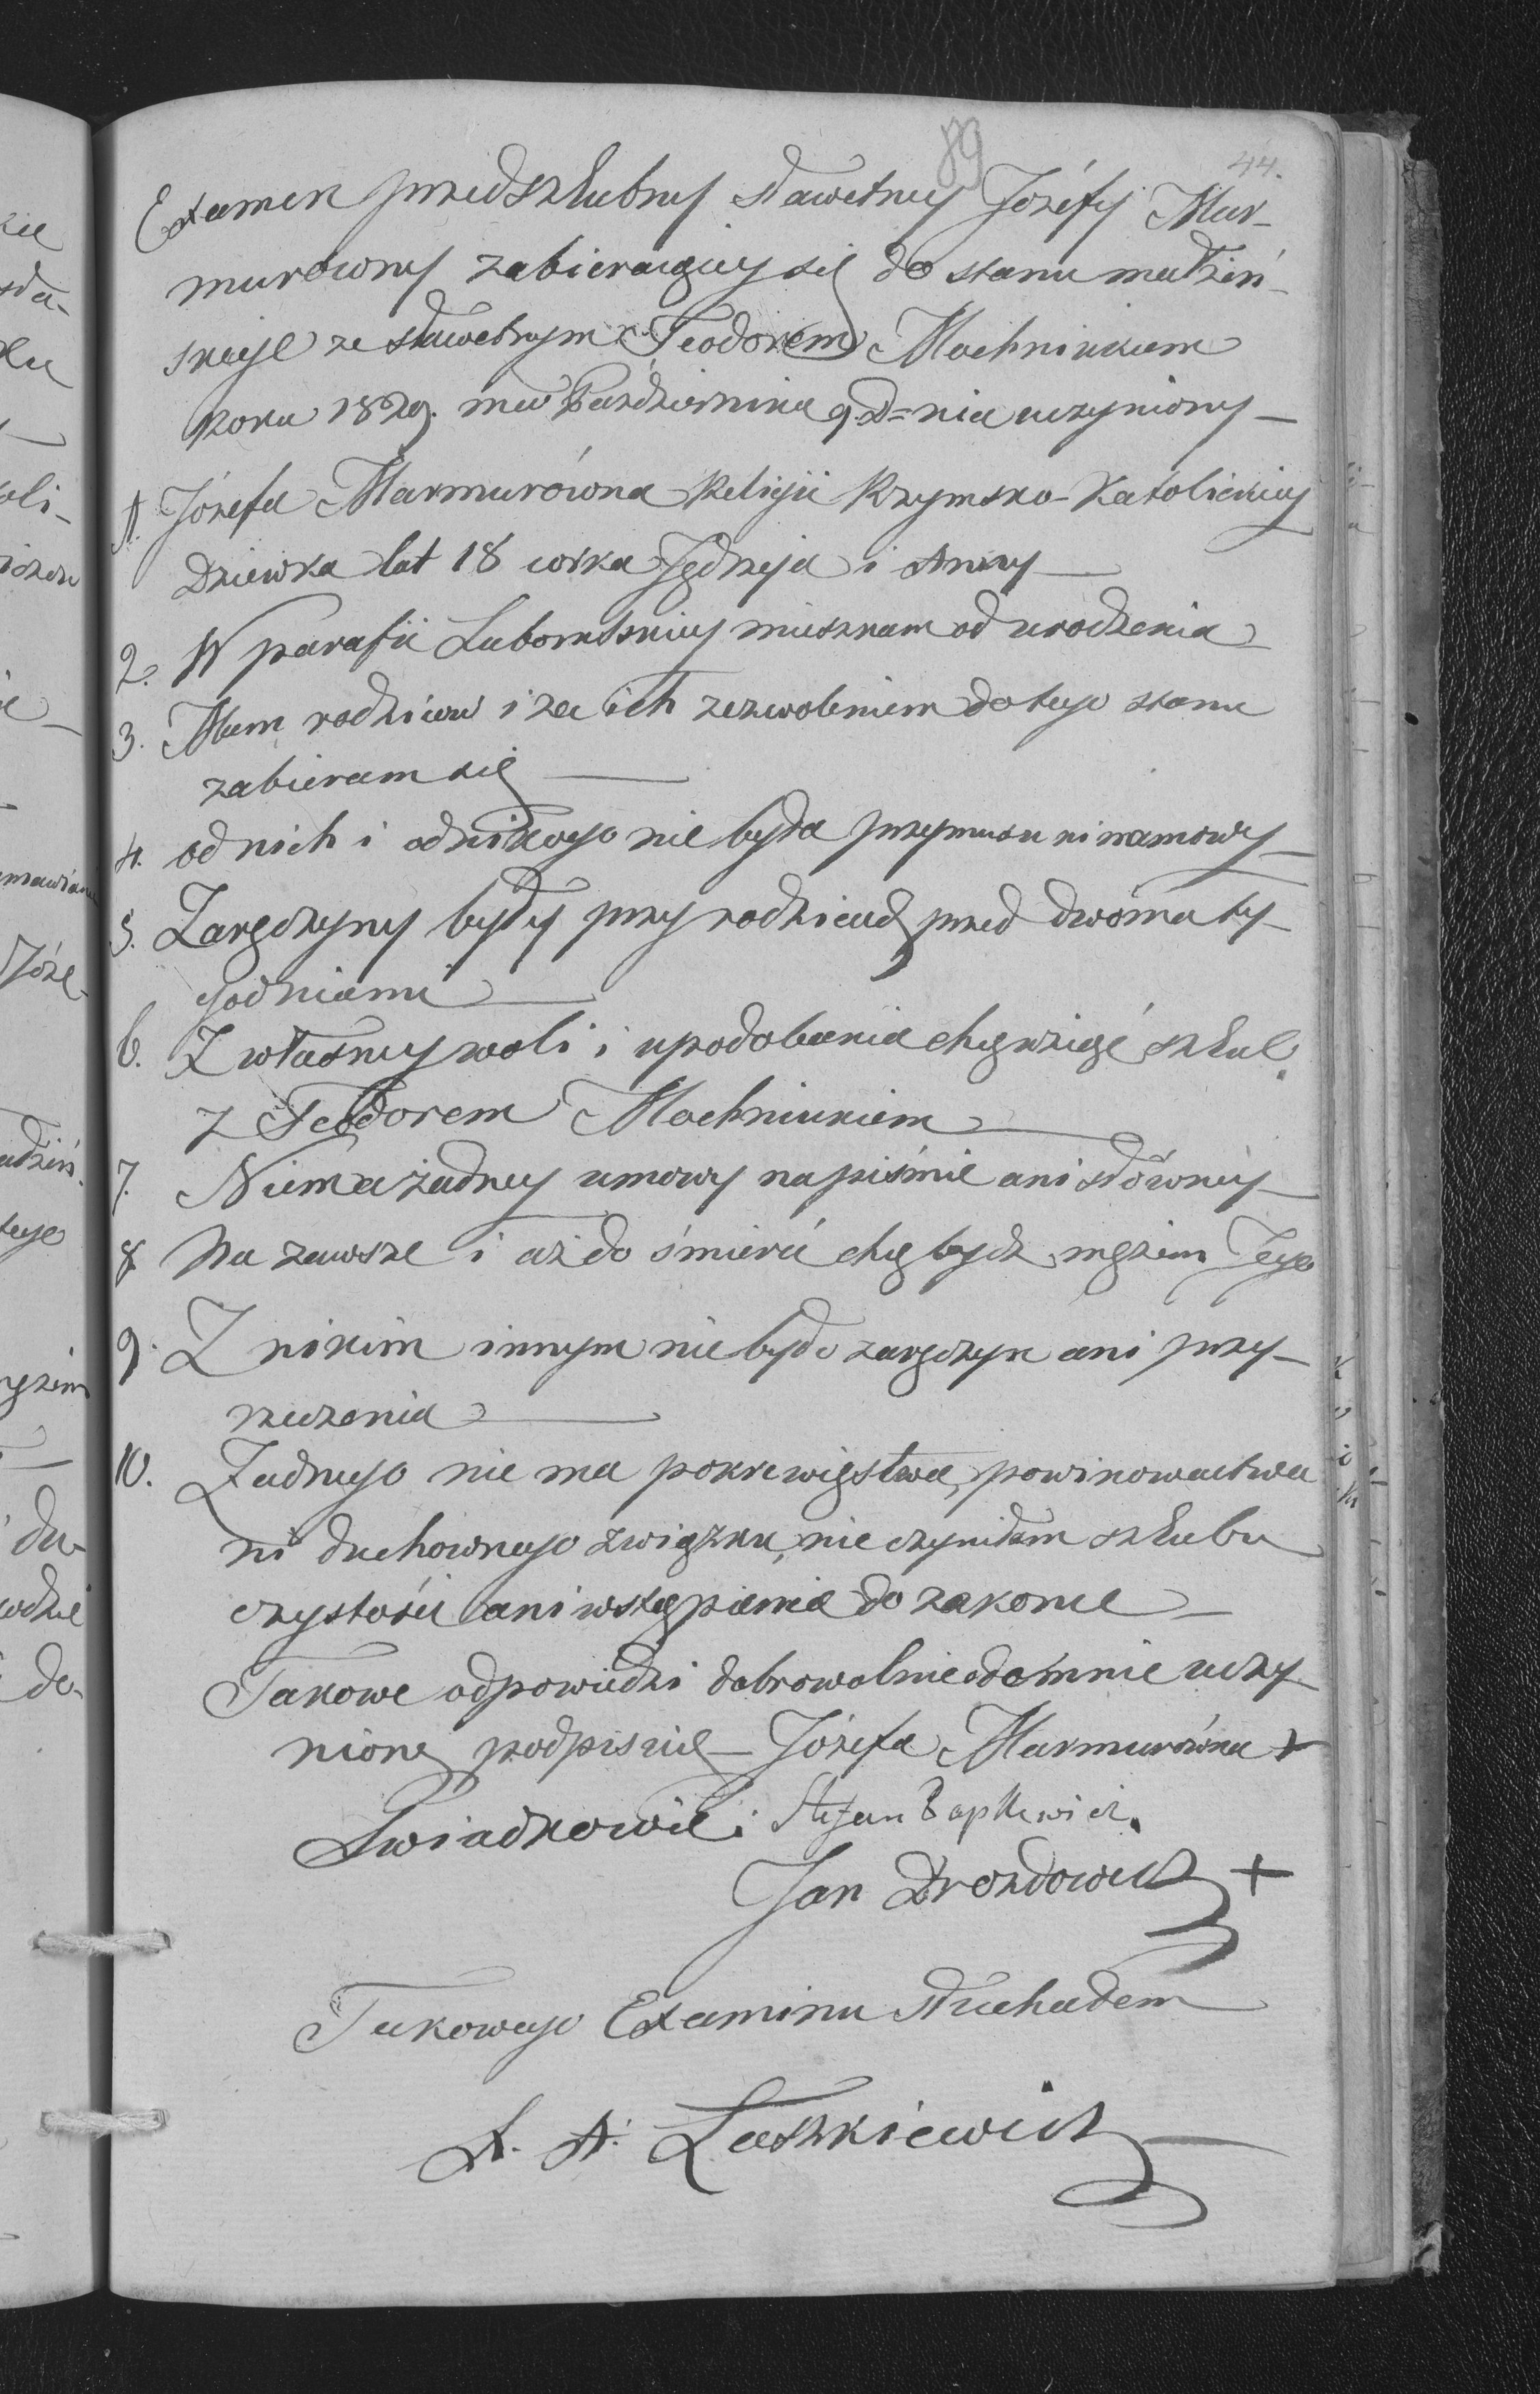 89
44.
Examen przedszłubny sławetney Józefy Mar-
murowny zabieraiącey się do stanu małżeń-
skiego ze sławetnym Teodorem Machniukiem
Roku 1829. mca Października 9. D=nia uczyniony —
1. Józefa Marmurówna Religii Rzymsko-Katolickiey
Dziewka lat 18 córka Jędrzeja i Anny —
2. W parafii Lubomlskiey mieszkam od urodzenia
3. Mam rodziców i za ich zezwoleniem do tego stanu
zabieram się —
4. od nich i od nikogo nie było przymusu ni namowy —
5. Zaręczyny były przy rodzicach przed dwoma ty-
godniami —
6. Z własney woli i upodobania chcę wziąć szłub
z Teodorem Machniukiem —
7. Niema żadney umowy na piśmie ani słowney —
8 Na zawsze i aż do śmierci chcę bydź mężem Jego
9. Z nikim innym nie było zaręczyn ani przy-
rzeczenia —
10. Żadnego nie ma pokrewięstwa, powinowactwa
ni duchownego związku, nie czyniłam szłubu
czystości ani wstąpienia do zakonu —
Takowe odpowiedzi dobrowolnie odemnie uczy-
nione podpisuię — Józefa Marmurówna +
Świadkowie: Stefan Bapkiewicz.
Jan Drozdowicz +
Takowego Examinu słuchałem
X. A. Laszkiewicz